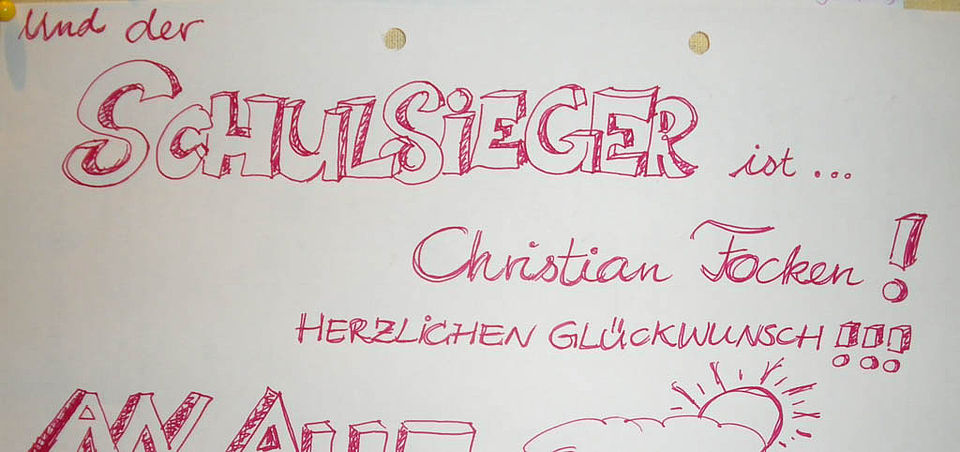 Und der
SCHULSiEGER ist...
Christian Focken!
HERZLiCHEN GLÜCKWUNSCH!!!
AN ALLE